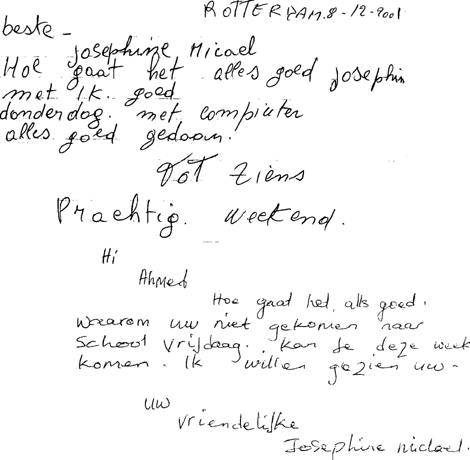 ROTTERDAM. 8-12-2001
beste -
Josephine Micael
Hoe gaat het alles goed Josephin
met ik. goed
donderdag. met compiuter
alles goed gedaan.
Tot Ziens
Prachtig. weekend.
Hi
Ahmed
Hoe gaat het, alls goed.
Waarom uw niet gekomen naar
School vrijdaag. kan je deze week
komen. Ik willen gezien uw.
uw
vriendelijke
Josephine